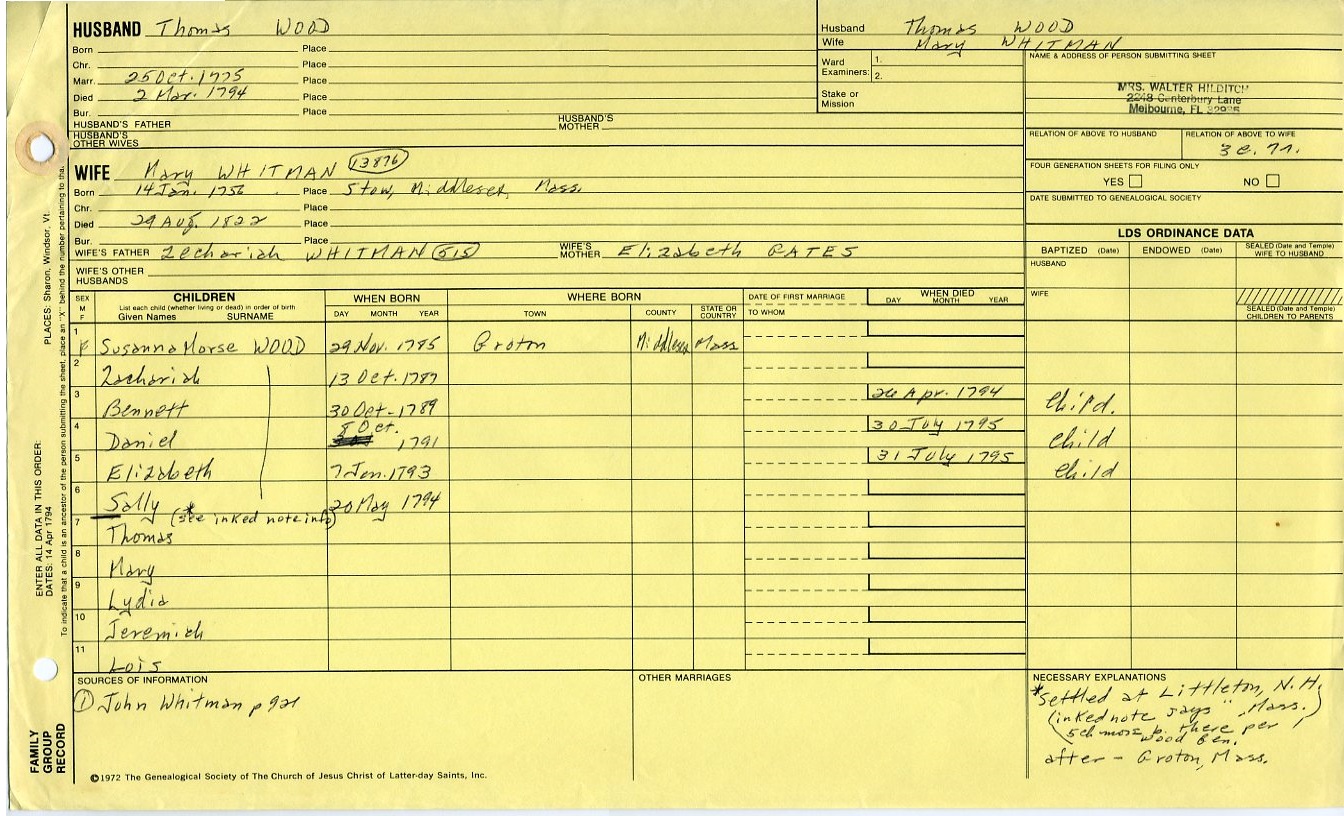 HUSBAND Thomas WOOD
Born Place
Chr. Place
Marr. 25 Oct. 1775 Place
Died 2 Mar. 1794 Place
Bur. Place
HUSBAND'S FATHER HUSBAND'S MOTHER
HUSBAND'S OTHER WIVES
Husband Thomas WOOD
Wife Mary WHITMAN
Ward Examiners: 1.
2.
Stake or Mission
NAME & ADDRESS OF PERSON SUBMITTING SHEET
MRS. WALTER HILDITCH
2248 Canterbury Lane
Melbourne, FL 32935
RELATION OF ABOVE TO HUSBAND RELATION OF ABOVE TO WIFE
3c. 7r.
FOUR GENERATION SHEETS FOR FILING ONLY
YES NO
DATE SUBMITTED TO GENEALOGICAL SOCIETY
WIFE Mary WHITMAN 13876
Born 14 Jan. 1756 Place Stow, Middlesex, Mass.
Chr. Place
Died 29 Aug. 1822 Place
Bur. Place
WIFE'S FATHER Zechariah WHITMAN 515 WIFE'S MOTHER Elizabeth GATES
WIFE'S OTHER HUSBANDS
LDS ORDINANCE DATA
BAPTIZED (Date) ENDOWED (Date) SEALED (Date and Temple) WIFE TO HUSBAND
HUSBAND
WIFE
SEALED (Date and Temple) CHILDREN TO PARENTS
SEX M F CHILDREN WHEN BORN WHERE BORN DATE OF FIRST MARRIAGE WHEN DIED
List each child (whether living or dead) in order of birth
Given Names SURNAME DAY MONTH YEAR TOWN COUNTY STATE OR COUNTRY TO WHOM DAY MONTH YEAR
1 F Susanna Morse WOOD 29 Nov. 1785 Groton Middlesex Mass
2 Zachariah 13 Oct. 1787
3 Bennett 30 Oct. 1789 26 Apr. 1794 Child.
4 Daniel 8 Oct. 1791 30 July 1795 Child
5 Elizabeth 7 Jan. 1793 31 July 1795 Child
6 Sally 20 May 1794
(*see inked note info)
7 Thomas
8 Mary
9 Lydia
10 Jeremiah
11 Lois
SOURCES OF INFORMATION
① John Whitman p 921
OTHER MARRIAGES
NECESSARY EXPLANATIONS
*settled at Littleton, N.H.
(inked note says " , Mass.)
(5ch more b. there per
Wood Gen.
after - Groton, Mass.
©1972 The Genealogical Society of The Church of Jesus Christ of Latter-day Saints, Inc.
FAMILY GROUP RECORD
ENTER ALL DATA IN THIS ORDER:
DATES: 14 Apr 1794
PLACES: Sharon, Windsor, Vt.
To indicate that a child is an ancestor of the person submitting the sheet, place an "X" behind the number pertaining to that